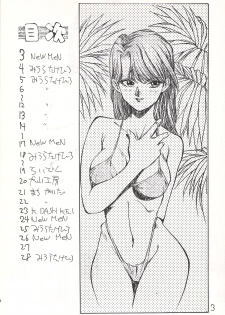 目次
3 NEW MEN
4 みうらたけひろ
5 みうらたけひろ
6 〃
〜
12 〃
13 〃
14 〃
〜
17 NEW MEN
18 みうらたけひろ
19
20 犬山工房
21
22 〃
23 K.DASH KEI
24 NEW MEN
25 みうらたけひろ
26 NEW MEN
27
28 みうらたけひろ
3